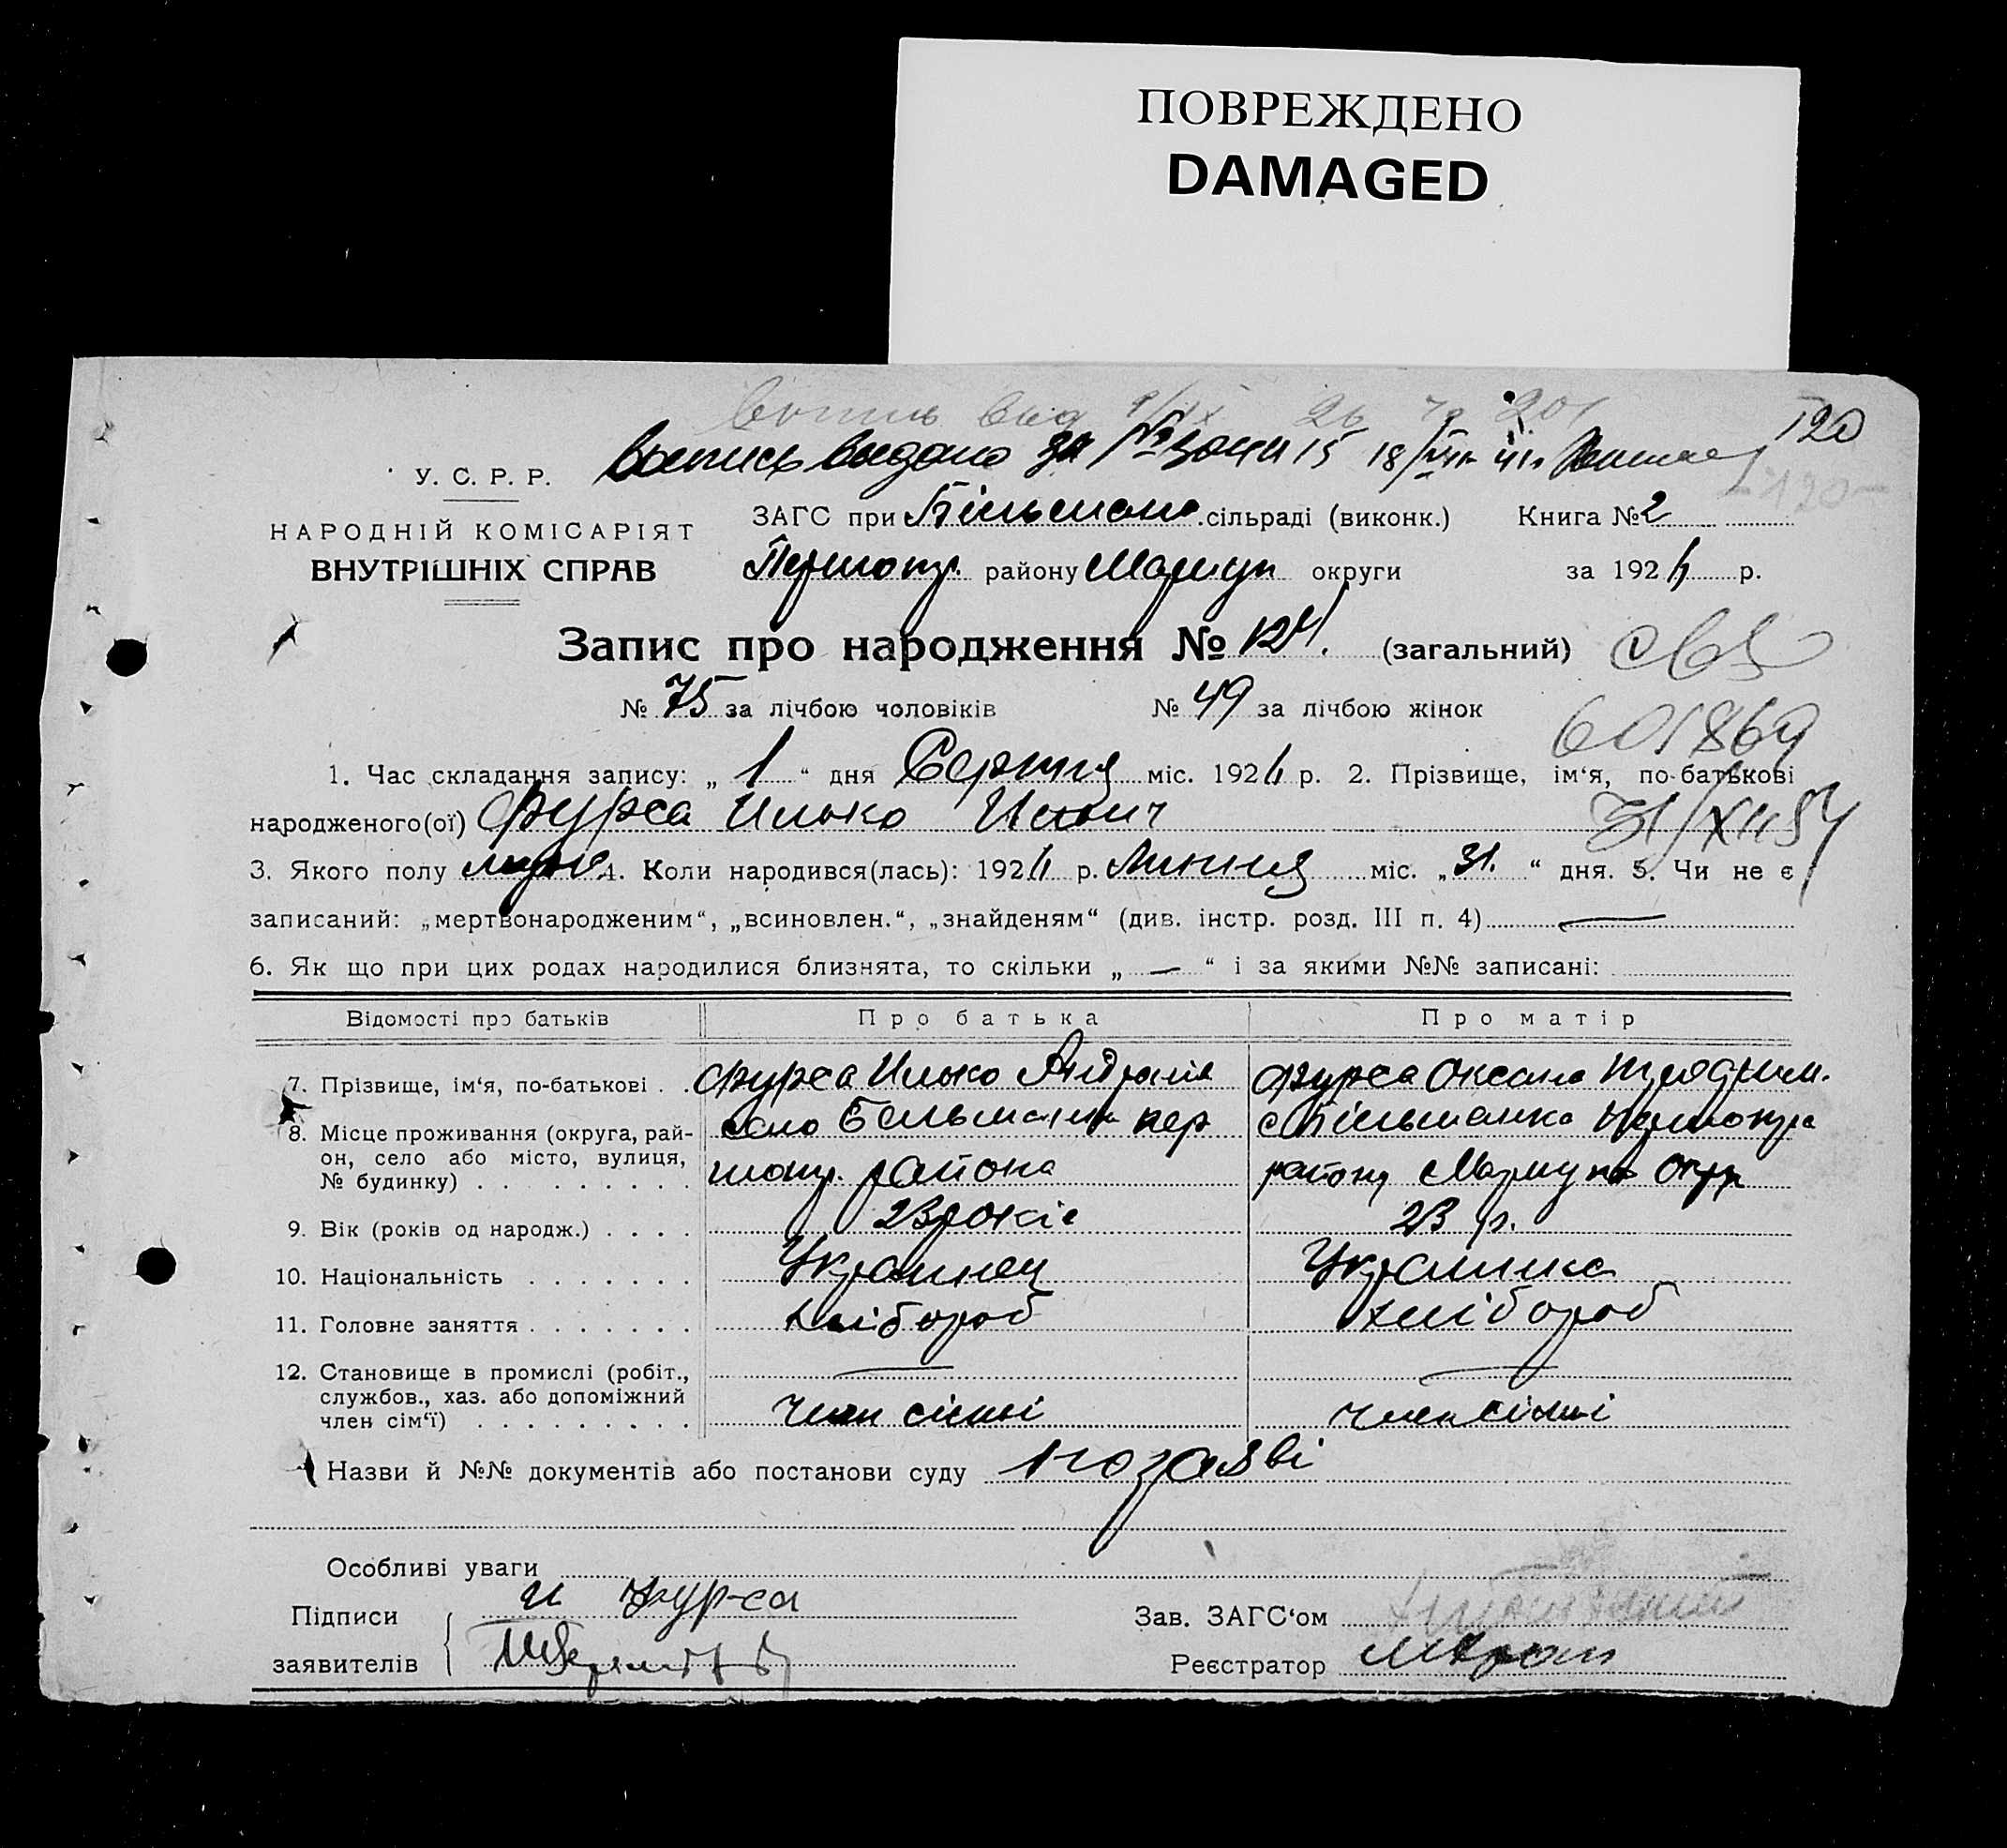 ПОВРЕЖДЕНО
DAMAGED
120
выпись выдана за № 18/
У. С. Р. Р.
НАРОДНІЙ КОМІСАРІЯТ
ВНУТРІШНІХ СПРАВ
ЗАГС при сільраді (виконк.) Книга № 2
району Мариуп округи за 192 р.
Запис про народження № 124. (загальний)
№ 75 за лічбою чоловіків № 49 за лічбою жінок
601869
1. Час складання запису: „ 1 “ дня Серпня міс. 192 р. 2. Прізвище, ім‘я, по-батькові
народженого(ої) Фурса Илько Ильич
31/XII 57
3. Якого полу муж. 4. Коли народився(лась): 192 р. Липня міс. „ 31. “ дня. 5. Чи не є
записаний: „мертвонародженим“, „всиновлен.“, „знайденям“ (див. інстр. розд. III п. 4) —
6. Як що при цих родах народилися близнята, то скільки „ — “ і за якими №№ записані:
Відомості про батьків Про батька Про матір
7. Прізвище, ім‘я, по-батькові . . Фурса Илько Фурса Оксана
8. Місце проживання (округа, рай- село пер
он, село або місто, вулиця,
№ будинку) . . . . . . . . . шотр. района району Мариуп окр
9. Вік (років од народж.) . . . . 23 років 23 р.
10. Національність . . . . . . . Украинец Украинка
11. Головне заняття . . . . . . . хлібороб хлібороб
12. Становище в промислі (робіт., — —
службов., хаз. або допоміжний
член сім‘ї) . . . . . . . . . член сімьі член сімьі
Назви й №№ документів або постанови суду по заяві
Особливі уваги
Підписи И Фурса Зав. ЗАГС‘ом
заявителів Реєстратор